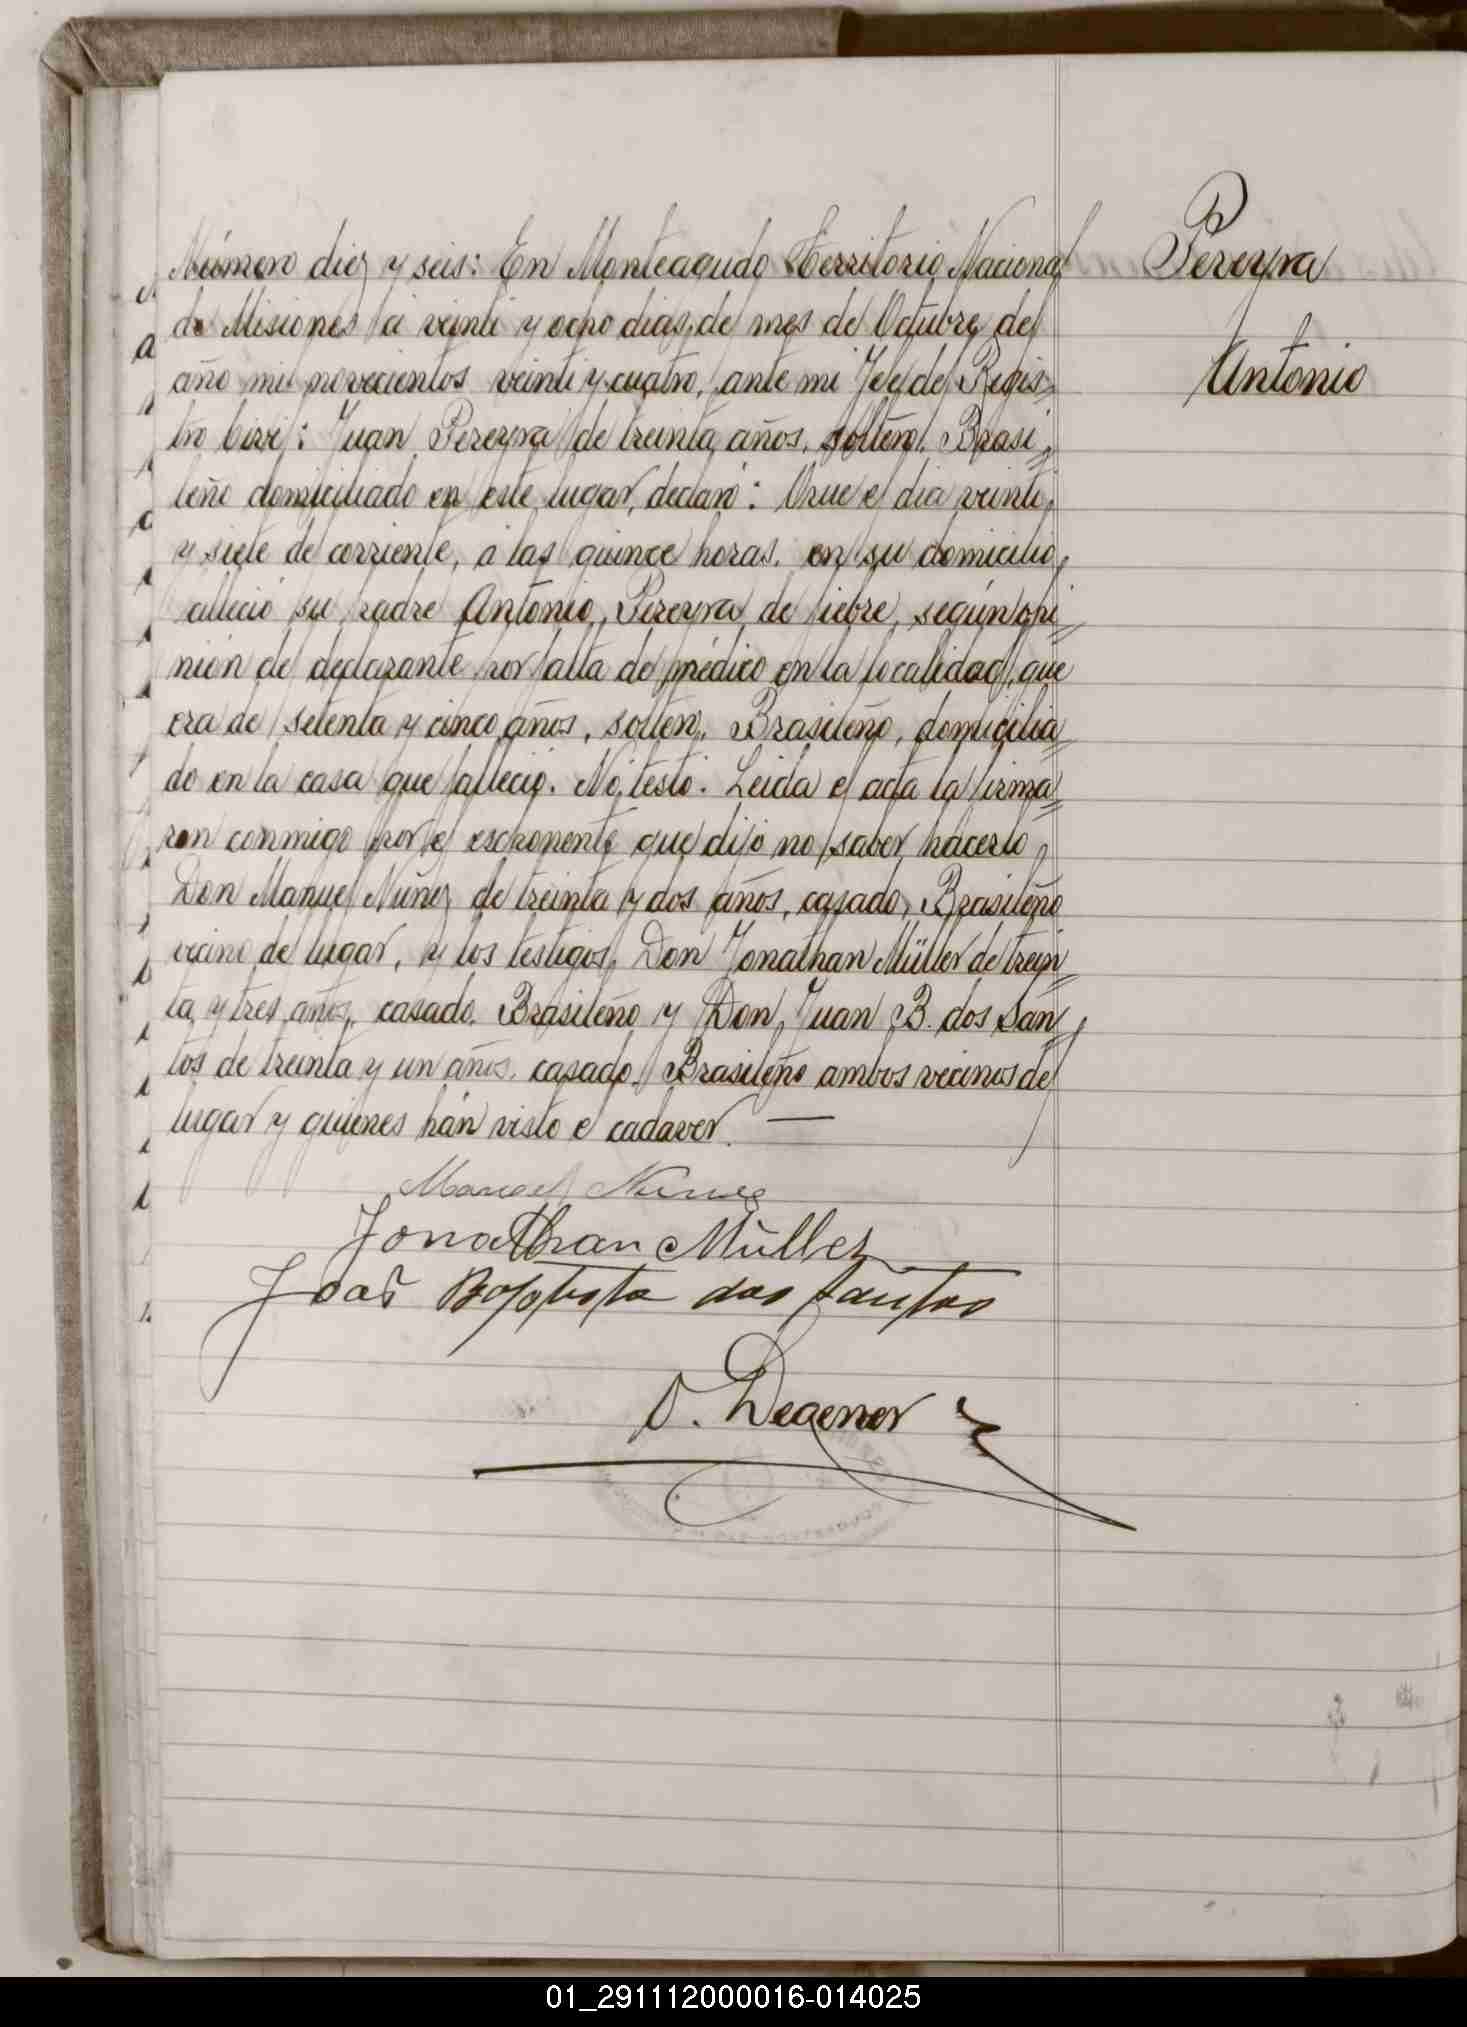 Número diez y seis: En Monteagudo Territorio Nacional
de Misiones á veinti y ocho dias del mes de Octubre del
año mil novecientos veinti y cuatro, ante mi Jefe del Regis=
tro Civil: Juan Pereyra de treinta años, soltero, Brasi=
leño domiciliado en este lugar, declaró: Que el dia veinti
y siete del corriente, á las quince horas, en su domicilio,
falleció su padre Antonio Pereyra de fiebre, según opi=
nión del declarante por falta de médico en la localidad, que
era de setenta y cinco años, soltero, Brasileño, domicilia=
do en la casa que falleció. No testó. Leida el acta la firma=
ron conmigo por el exponente que dijo no saber hacerlo,
Don Manuel Nuñez de treinta y dos años, casado, Brasileño
vecino del lugar, y los testigos, Don Jonathan Müller de trein=
ta y tres años, casado, Brasileño y Don Juan B. dos San=
tos de treinta y un años, casado, Brasileño ambos vecinos del
lugar y quienes hán visto el cadaver. —
Manoel Nunes
Jonathan Müller
João Baptista dos Santos
O. Degener
Pereyra
Antonio
01_291112000016-014025